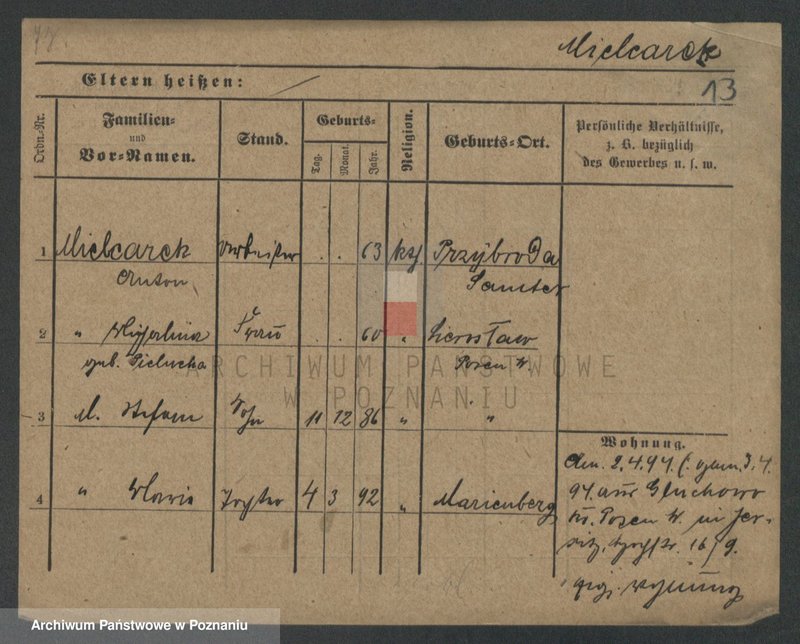 77.
Mielcarek
Eltern heißen:
13
Ordn.-Nr.
Familien- und Vor-Namen.
Stand.
Geburts-
Tag.
Monat.
Jahr.
Religion.
Geburts-Ort.
Persönliche Verhältnisse,
z. B. bezüglich
des Gewerbes u. s. w.
1 Mielcarek Arbeiter . . 63 kth. Przybroda
Anton Samter
2 " Frau . . 60 "
geb. Posen W.
3 M. Stefan Sohn 11 12 86 " "
Wohnung.
4 " Maria Tochter 4 3 92 " Marienberg
Am. 2.4.94 3.4.
94 aus Gluchowo
Kr. Posen W. in Jer-
sitz, 16/9.
ARCHIWUM PAŃSTWOWE
W POZNANIU
Archiwum Państwowe w Poznaniu